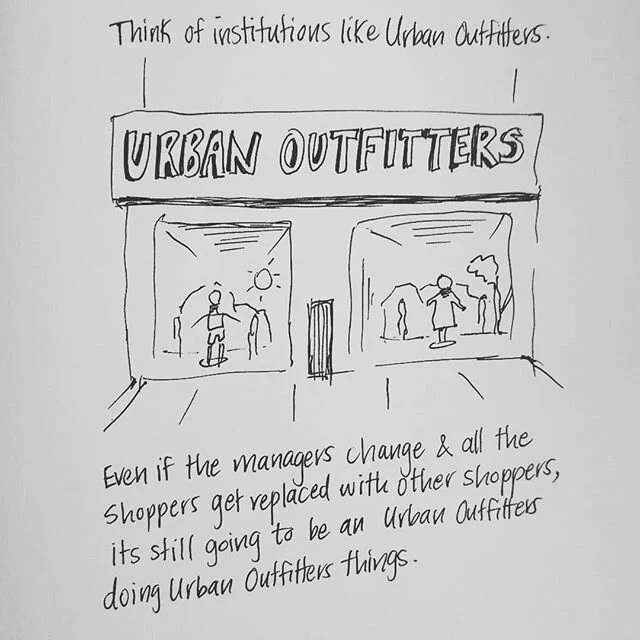 Think of institutions like Urban Outfitters.
URBAN OUTFITTERS
Even if the managers change & all the
shoppers get replaced with other shoppers,
its still going to be an Urban Outfitters
doing Urban Outfitters things.